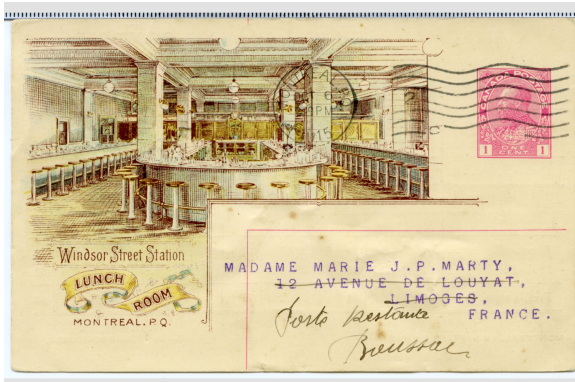 CANADA POSTAGE
1 1
ONE
CENT
Windsor Street Station
LUNCH
ROOM
MONTREAL. P.Q.
MADAME MARIE J.P.MARTY,
12 AVENUE DE LOUYAT,
LIMOGES,
FRANCE.
Poste Restante
Boussac